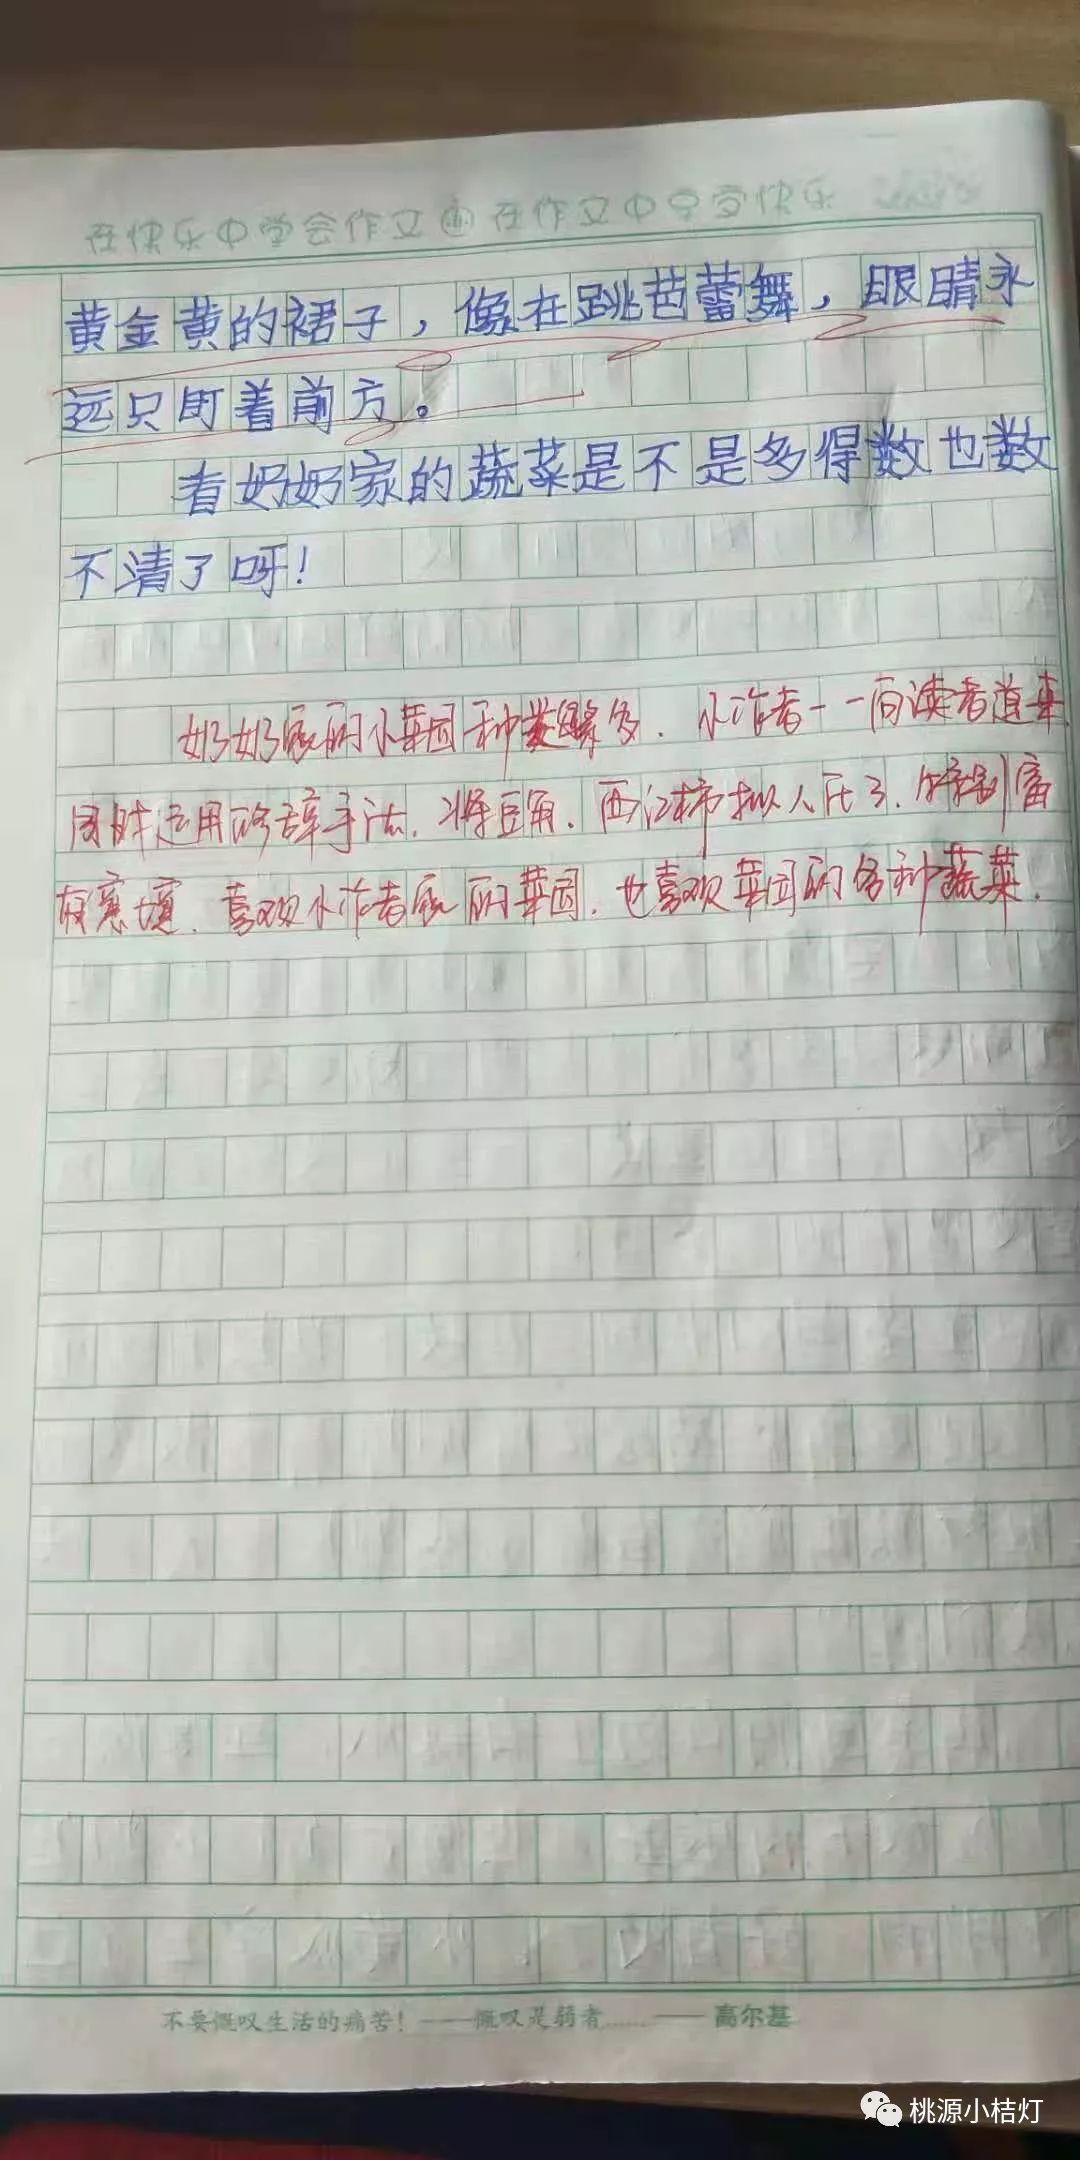 在快乐中学会作文 在作文中享受快乐
黄金黄的裙子，像在跳芭蕾舞，眼睛永
远只盯着前方。
看奶奶家的蔬菜是不是多得数也数
不清了呀！
奶奶家的小菜园种类繁多．小作者一一向读者道来．
同时运用修辞手法．将豆角．西红柿拟人化了．特别富
有意境．喜欢小作者家的菜园．也喜欢菜园的各种蔬菜．
不要慨叹生活的痛苦！——慨叹是弱者……——高尔基
桃源小桔灯